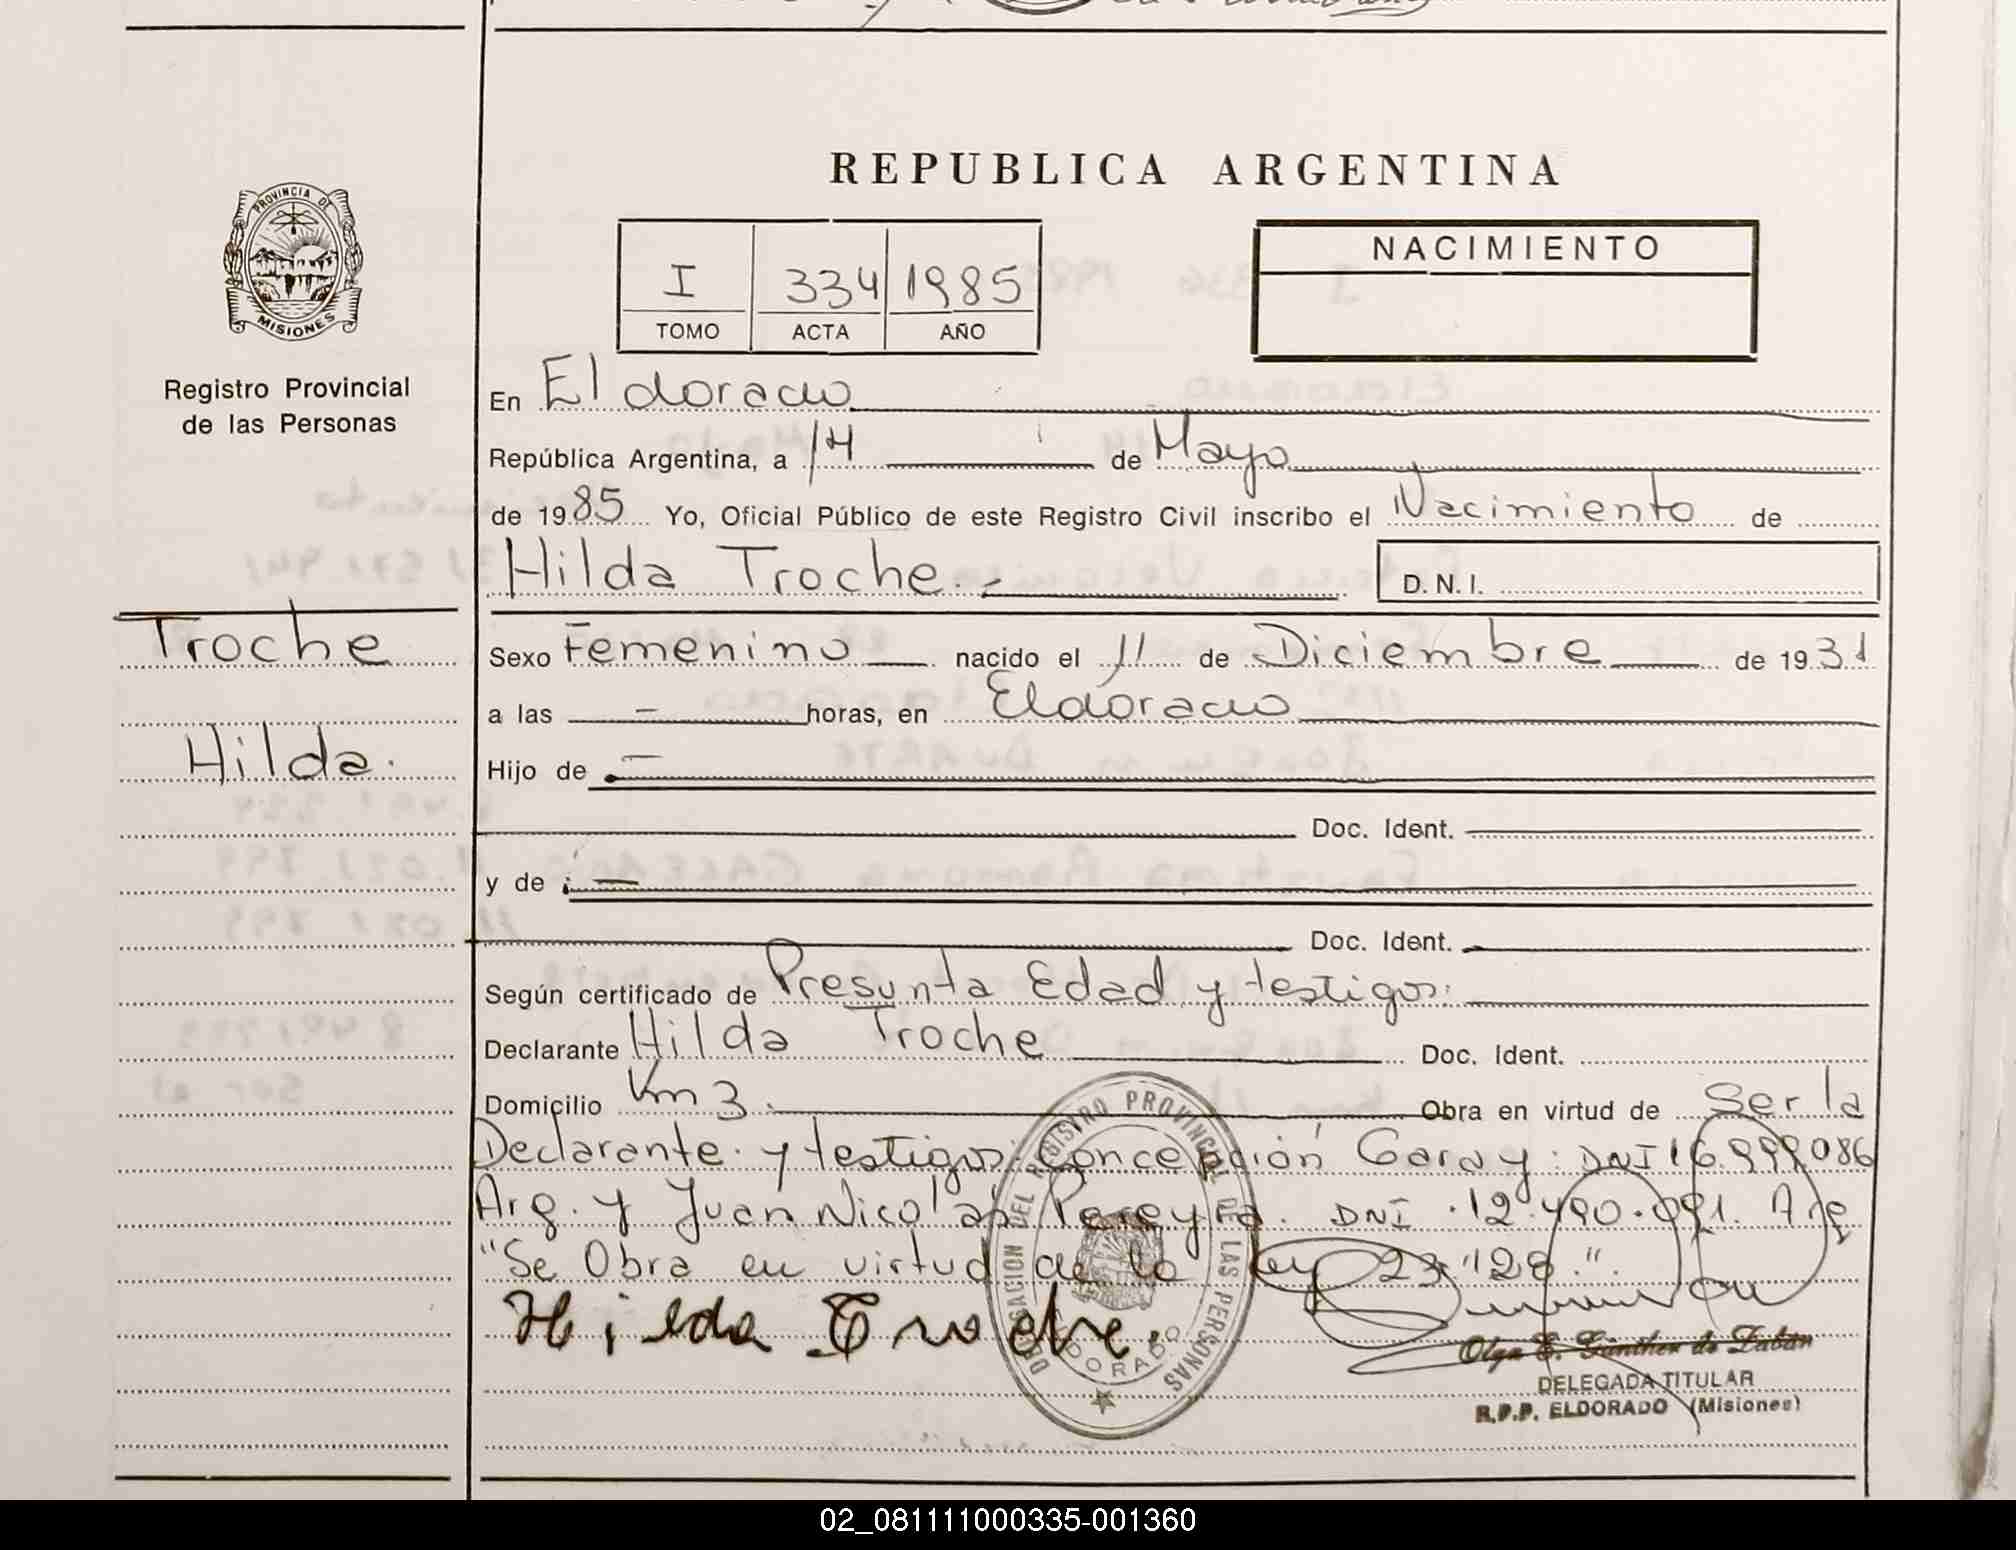 REPUBLICA ARGENTINA
PROVINCIA DE
MISIONES
Registro Provincial
de las Personas
I 334 1985
TOMO ACTA AÑO
NACIMIENTO
En Eldorado
República Argentina, a 14 de Mayo
de 1985 Yo, Oficial Público de este Registro Civil inscribo el Nacimiento de
Hilda Troche.- D.N.I.
Troche
Hilda.
Sexo Femenino nacido el 11 de Diciembre de 1931
a las — horas, en Eldorado
Hijo de —
Doc. Ident.
y de : —
Doc. Ident.
Según certificado de Presunta Edad y testigos.
Declarante Hilda Troche Doc. Ident.
Domicilio Km 3. Obra en virtud de Ser la
Declarante. y testigos: Concepción Garay: DNI 16.999.086
Arg. y Juan Nicolas Pereyra. DNI. 12.490.991. Arg
"Se Obra en virtud de la Ley 23.128.".
Hilda Troche.
DELEGACION DEL REGISTRO PROVINCIAL DE LAS PERSONAS
ELDORADO
Olga E. Günther de Zabán
DELEGADA TITULAR
R.P.P. ELDORADO (Misiones)
02_081111000335-001360